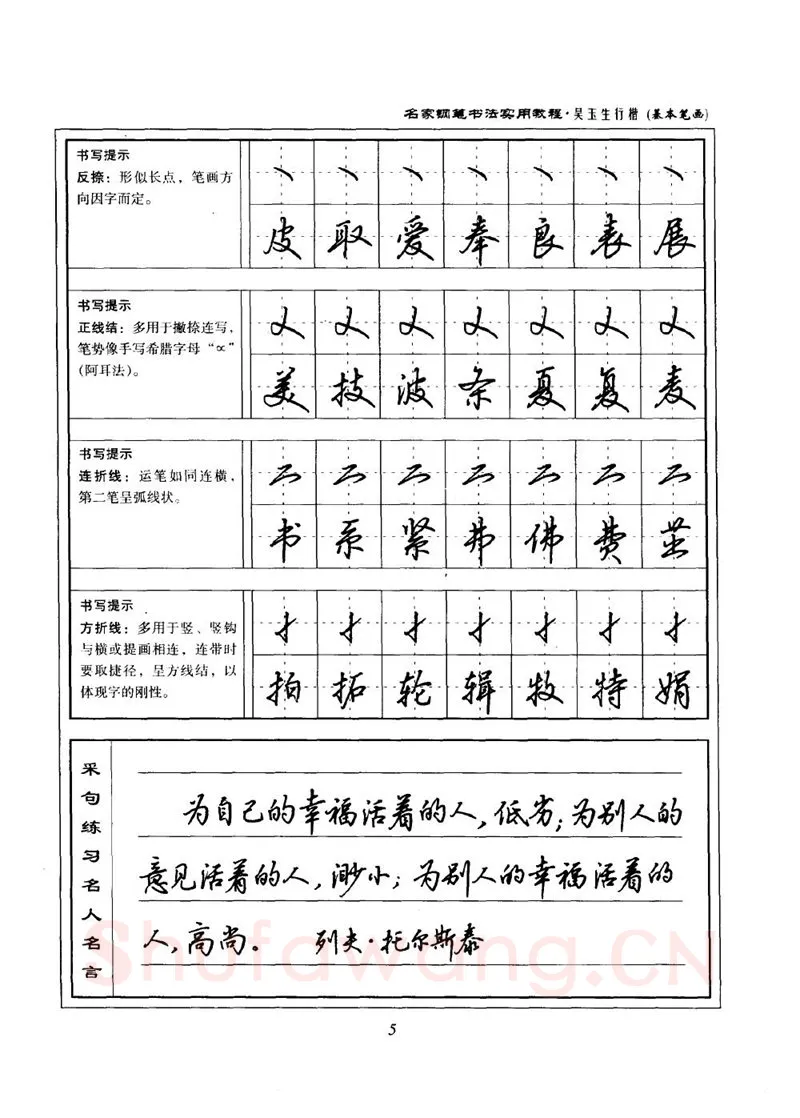 名家钢笔书法实用教程·吴玉生行楷 (基本笔画)
书写提示
反捺：形似长点，笔画方
向因字而定。
皮 取 爱 奉 良 表 展
书写提示
正线结：多用于撇捺连写，
笔势像手写希腊字母“∝”
(阿耳法)。
美 技 波 条 夏 复 麦
书写提示
连折线：运笔如同连横，
第二笔呈弧线状。
书 系 紧 弗 佛 费 茁
书写提示
方折线：多用于竖、竖钩
与横或提画相连，连带时
要取捷径，呈方线结，以
体现字的刚性。
拍 拓 轮 辑 牧 特 娟
采句练习名人名言
为自己的幸福活着的人，低劣；为别人的
意见活着的人，渺小；为别人的幸福活着的
人，高尚。 列夫·托尔斯泰
Shufawang.CN
5